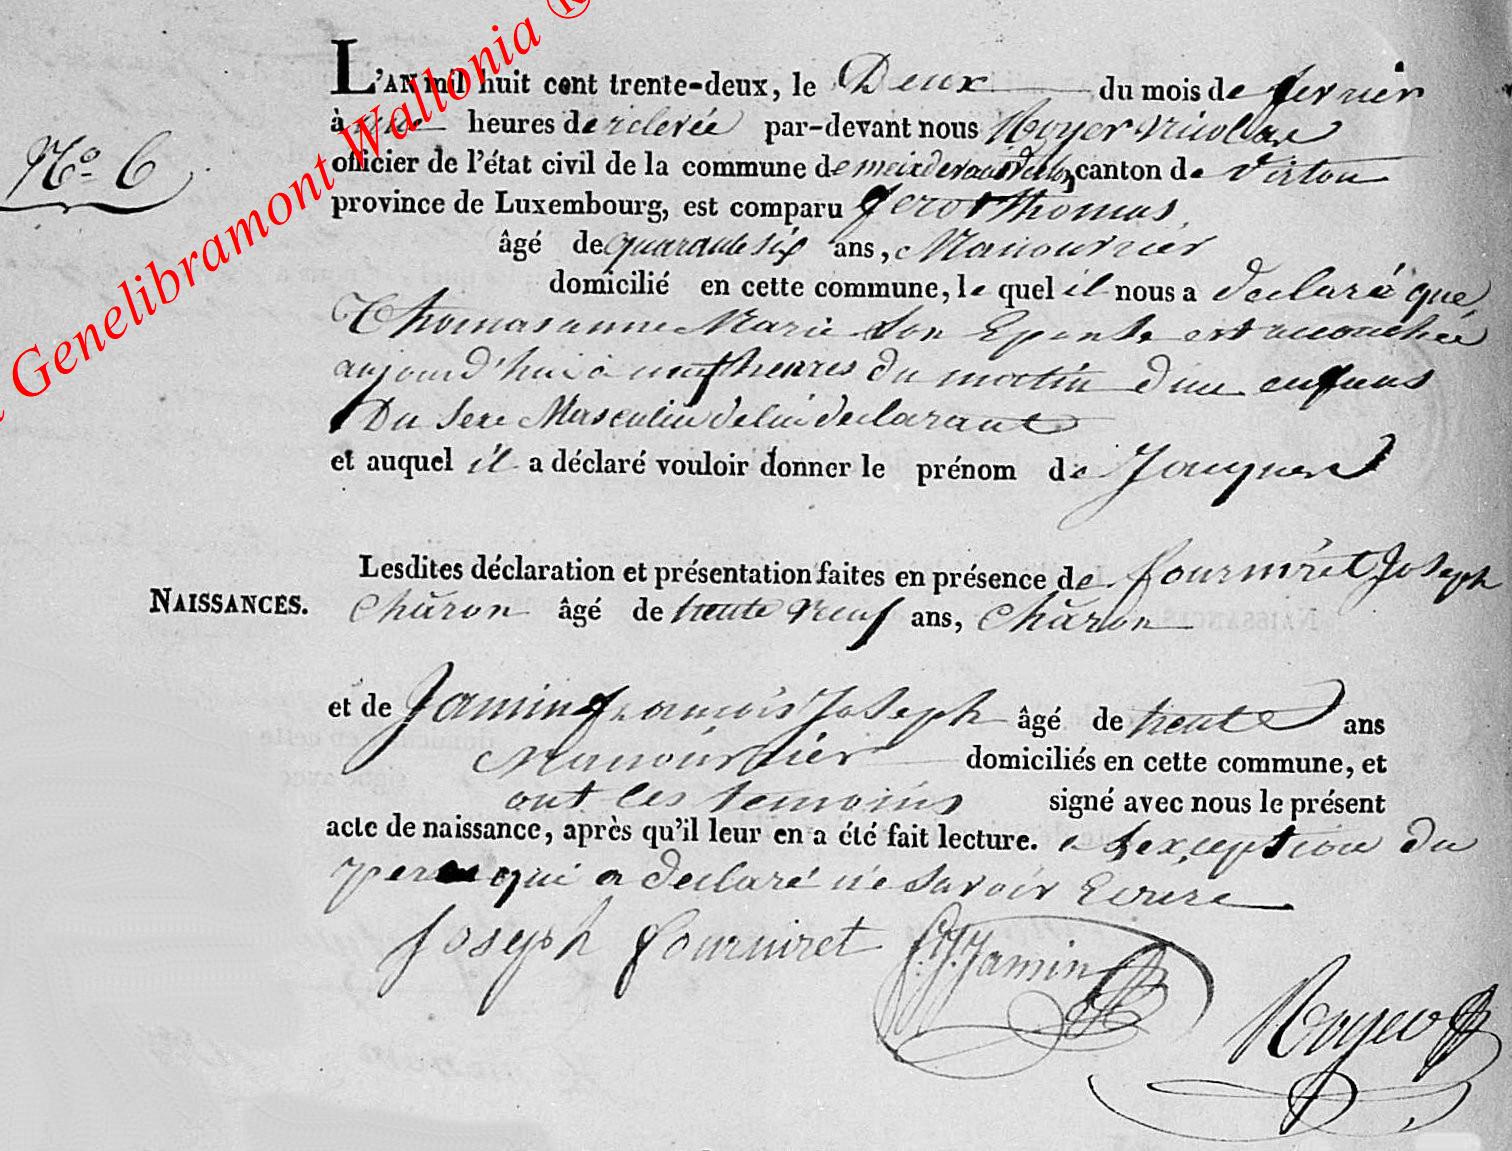 Genelibramont Wallonia ®
L'AN mil huit cent trente-deux, le Deux du mois de fevrier
à une heures de relevée par-devant nous Royer Nicolas
N° 6
officier de l'état civil de la commune de meix devant virton canton de Virton
province de Luxembourg, est comparu Gerot Thomas
âgé de quarante six ans, Manouvrier
domicilié en cette commune, le quel il nous a declaré que
Thomas anne Marie son Epouse est accouchée
aujourd'hui à neuf heures du matin d'un enfans
Du Sexe Masculin de lui declarant
et auquel il a déclaré vouloir donner le prénom de Jacques
Lesdites déclaration et présentation faites en présence de fourniret Joseph
NAISSANCES.
Charon âgé de trente neuf ans, Charon
et de Jamin françois Joseph âgé de trente ans
Manouvrier domiciliés en cette commune, et
ont les temoins signé avec nous le présent
acte de naissance, après qu'il leur en a été fait lecture. a l'exception du
pere qui a declaré ne savoir Ecrire
Joseph fourniret f.J. Jamin
Royer